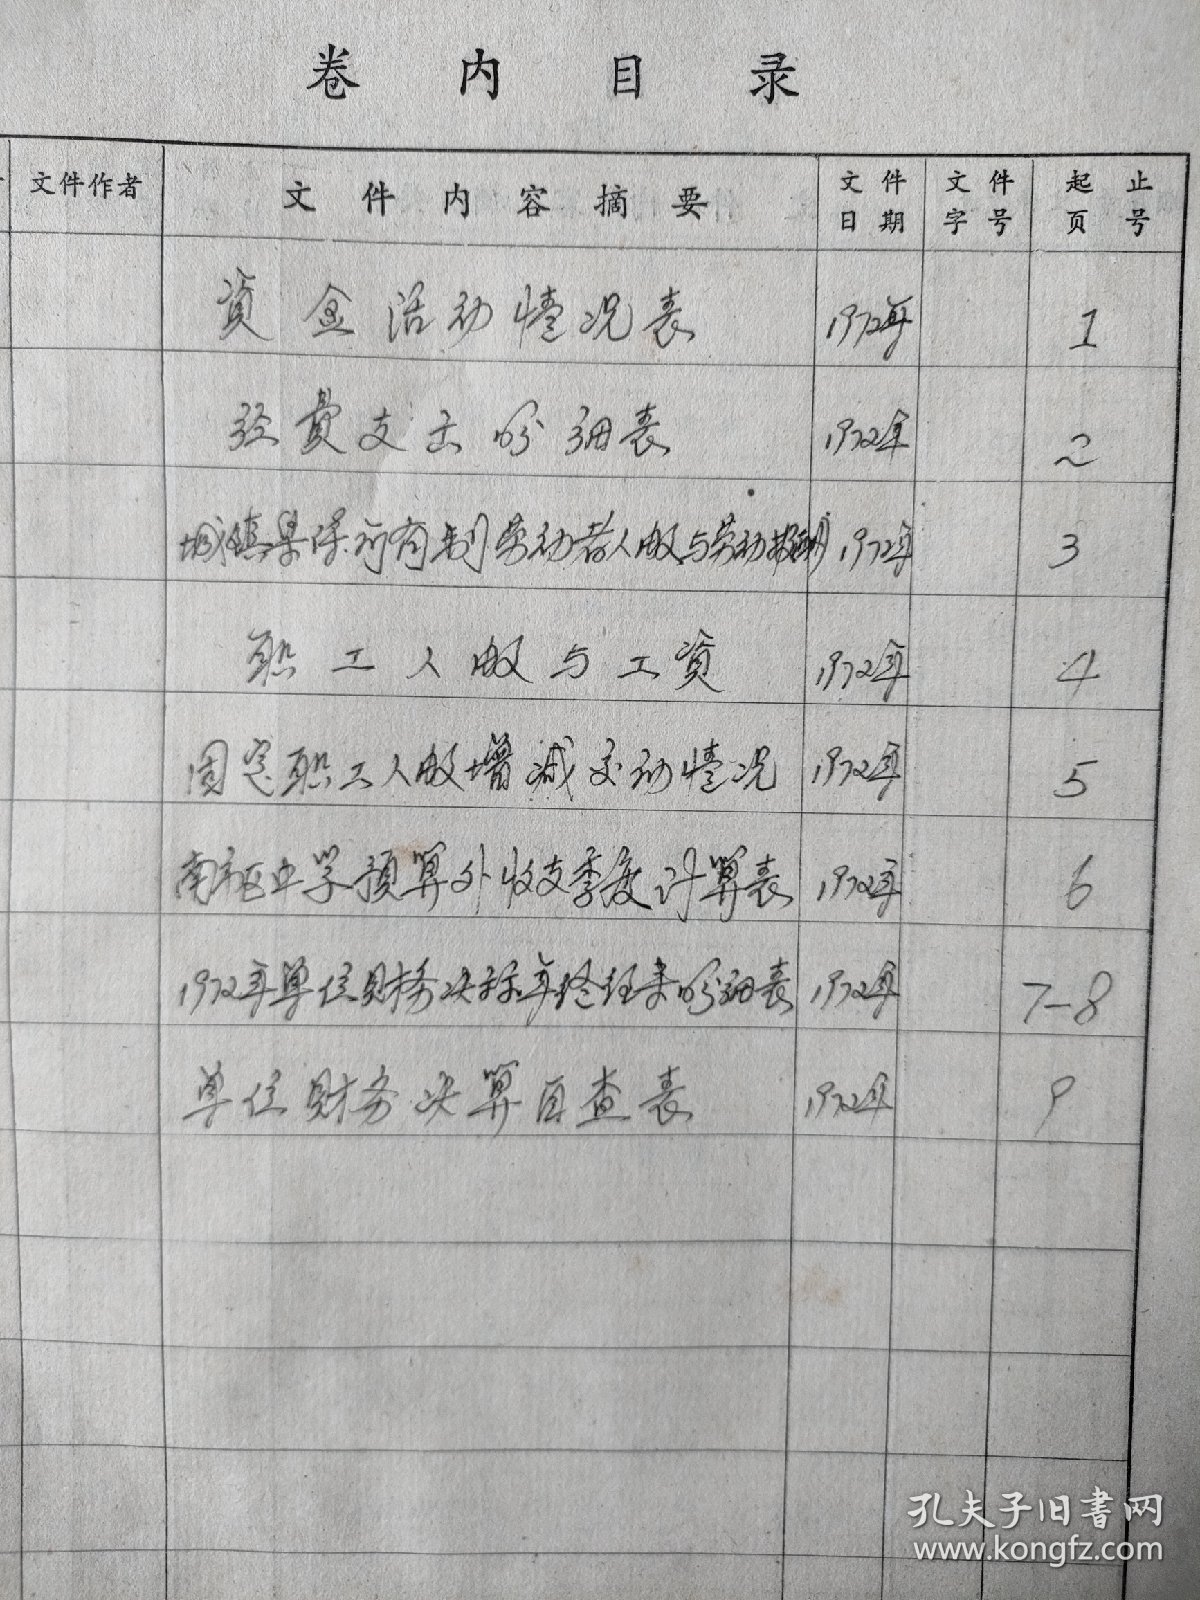 卷内目录
文件作者 文件内容摘要 文件日期 文件字号 起止页号
资金活动情况表 1972年 1
经费支出明细表 1972年 2
城镇集体所有制劳动者人数与劳动报酬 1972年 3
职工人数与工资 1972年 4
固定职工人数增减变动情况 1972年 5
南市区中学预算外收支季度计算表 1972年 6
1972年单位财务决算年终结束明细表 1972年 7-8
单位财务决算自查表 1972年 9
孔夫子旧书网
www.kongfz.com